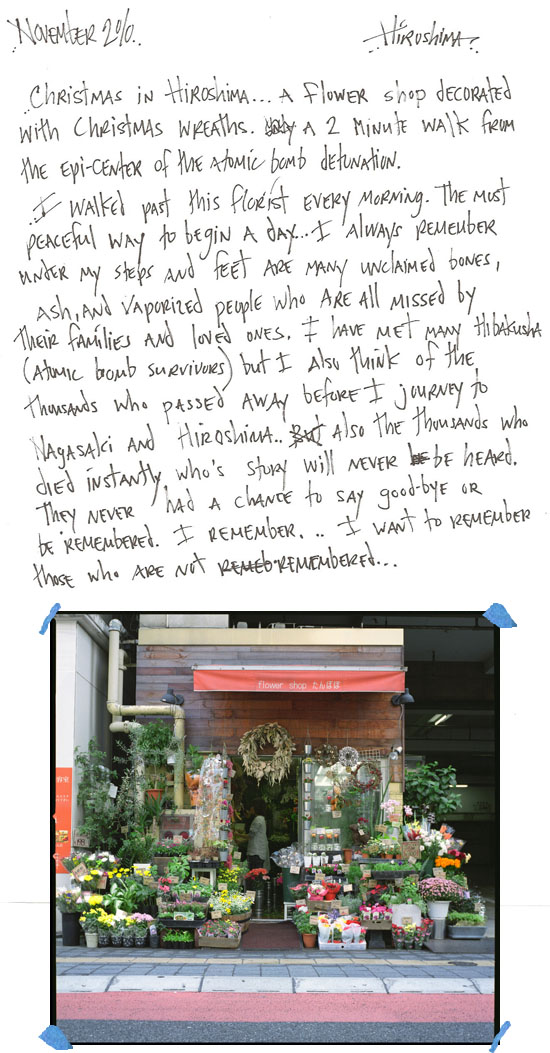 November 2010..
Hiroshima.
Christmas in Hiroshima... A flower shop decorated
with Christmas wreaths. A 2 minute walk from
the epi-center of the atomic bomb detonation.
I walked past this florist every morning. The most
peaceful way to begin a day... I always remember
under my steps and feet are many unclaimed bones,
ash, and vaporized people who are all missed by
their families and loved ones. I have met many Hibakusha
(atomic bomb survivors) but I also think of the
thousands who passed away before I journey to
Nagasaki and Hiroshima.. But also the thousands who
died instantly, who's story will never be be heard.
They never had a chance to say good-bye or
be remembered. I remember. .. I want to remember
those who are not remeb remembered...
flower shop たんぽぽ
容室